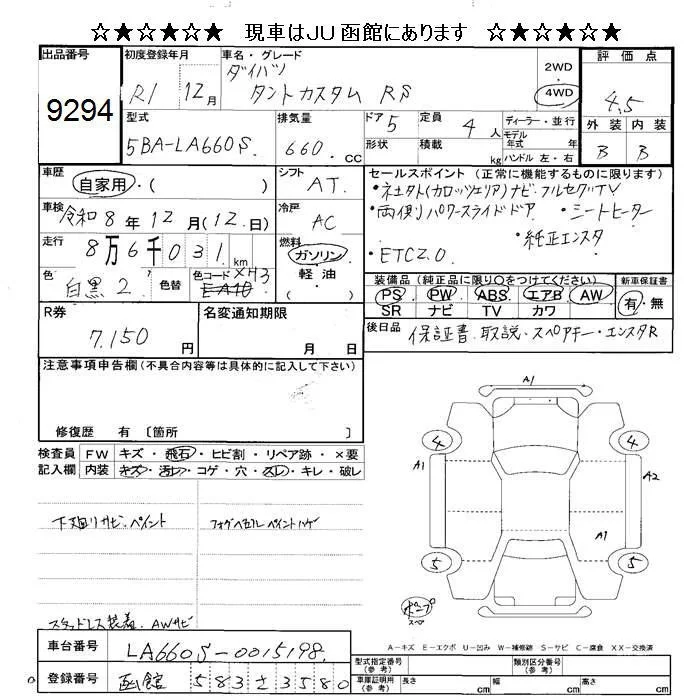 ☆★☆★☆★ 現車はJU函館にあります ☆★☆★☆★
出品番号
9294
初度登録年月
R1 12月
車名・グレード
ダイハツ
タントカスタム RS
2WD
4WD
評価点
4.5
外装 内装
B B
型式
5BA-LA660S
排気量
660 CC
ドア 5
定員 4人
形状
積載 kg
ディーラー・並行
モデル年式 年
ハンドル 左・右
車歴
自家用・( )
シフト
AT
車検
令和8年12月(12日)
冷房
AC
走行
8万6千031km
燃料
ガソリン・軽油
色
白黒2
色替
色コード XH3
( )
セールスポイント(正常に機能するものに限ります)
・両側パワースライドドア ・シートヒーター
・純正エンスタ
・ETC2.0
装備品(純正品に限り○をつけてください)
PS PW ABS エアB AW
SR ナビ TV カワ
新車保証書
有・無
R券
7,150円
名変通知期限
月 日
後日品
保証書、取説・スペアキー・エンスタR
注意事項申告欄(不具合内容等は具体的に記入して下さい)
修復歴 有 〔箇所 〕
検査員記入欄
FW キズ・飛石・ヒビ割・リペア跡・×要
内装 キズ・汚レ・コゲ・穴・スレ・キレ・破レ
下廻りサビ、ペイント
スタッドレス装着、AWサビ
A1
4 4
A1 A2
A1
5 5
スペア
A-キズ E-エクボ U-凹み W-補修跡 S-サビ C-腐食 XX-交換済
車台番号
LA660S-0015198
登録番号
函館 583さ3580
型式指定番号(参考)
類別区分番号(参考)
車庫証明用(参考)
長さ cm
幅 cm
高さ cm